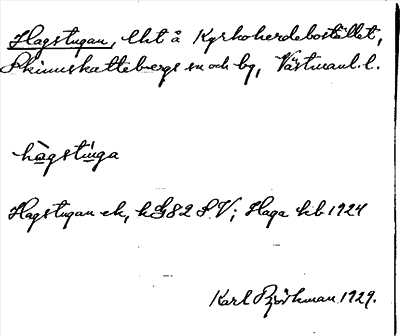 Hagstugan, lht å Kyrkoherdebostället,
Skinnskattebergs sn och bg, Västmanl. l.
hàgstùga
Hagstugan ek, h G82 S.V; Haga kb 1924
Karl Björkman 1929.